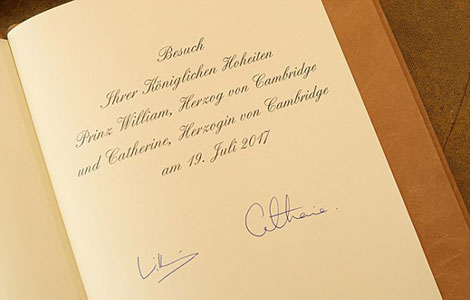 Besuch
Ihrer Königlichen Hoheiten
Prinz William, Herzog von Cambridge
und Catherine, Herzogin von Cambridge
am 19. Juli 2017
Catherine.